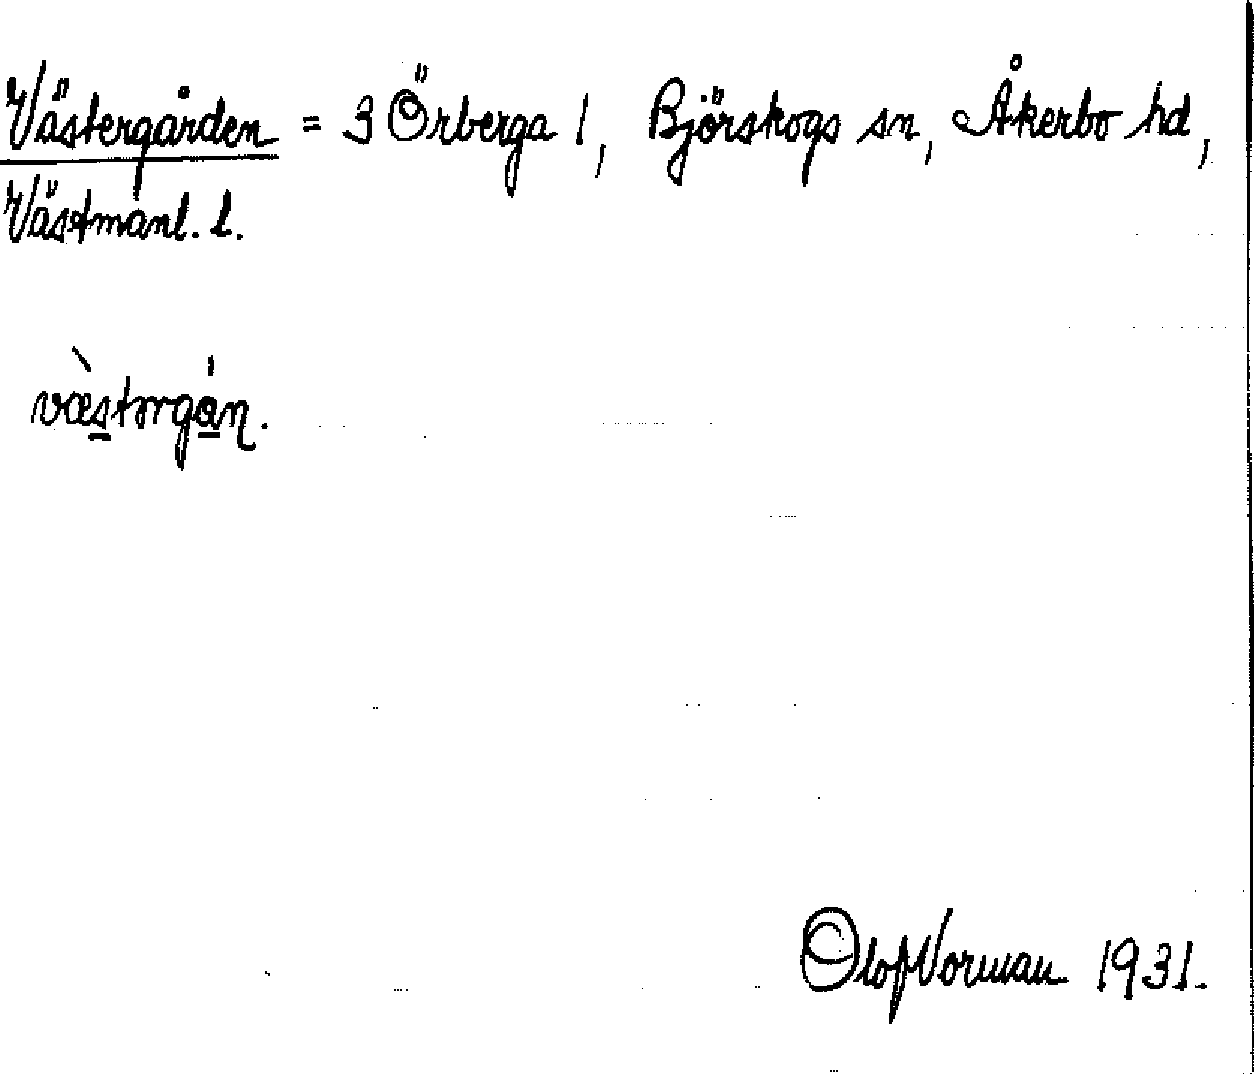 Västergården = 3 Örberga 1, Björskogs sn, Åkerbo hd,
Västmanl. l.
væ̀stərgån.
Olof Norman 1931.